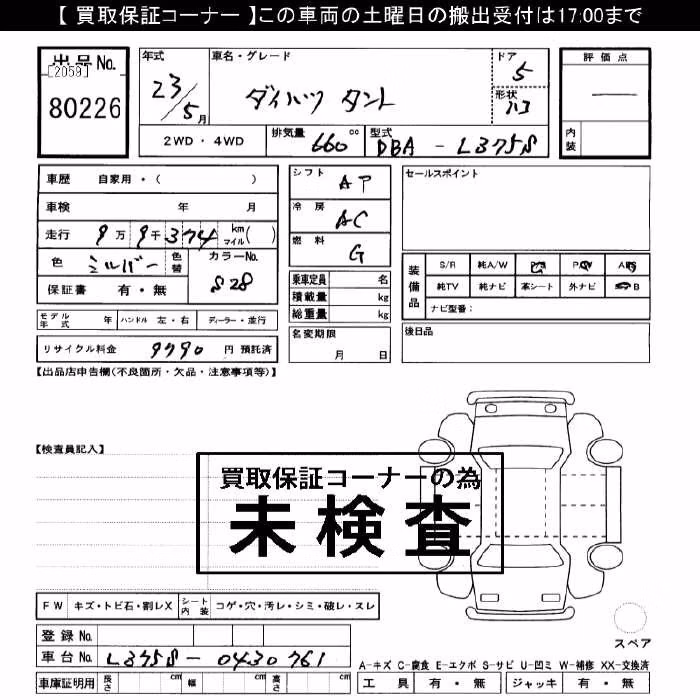 【 買取保証コーナー 】この車両の土曜日の搬出受付は17:00まで
出品No.
[2059]
80226
年式
23/5月
車名・グレード
ダイハツ タント
ドア
5
形状
評価点
―
内装
2WD・4WD
排気量 660 cc
型式 DBA - L375S
車歴 自家用・( )
車検 年 月
走行 9万9千374 km マイル( )
色 シルバー 色替 カラーNo. S28
保証書 有・無
モデル年式 年 ハンドル 左・右 ディーラー・並行
リサイクル料金 9790 円 預託済
シフト AT
冷房 AC
燃料 G
乗車定員 名
積載量 kg
総重量 kg
名変期限
月 日
セールスポイント
装備品
S/R 純A/W P/S P/W ABS
純TV 純ナビ 革シート 外ナビ B
ナビ型番:
後日品
【出品店申告欄(不良箇所・欠品・注意事項等)】
【検査員記入】
買取保証コーナーの為
未検査
FW キズ・トビ石・割レX シート内装 コゲ・穴・汚レ・シミ・破レ・スレ
登録No.
車台No. L375S-0430761
車庫証明用 長さ cm 幅 cm 高さ cm
スペア
A-キズ C-腐食 E-エクボ S-サビ U-凹ミ W-補修 XX-交換済
工具 有・無 ジャッキ 有・無